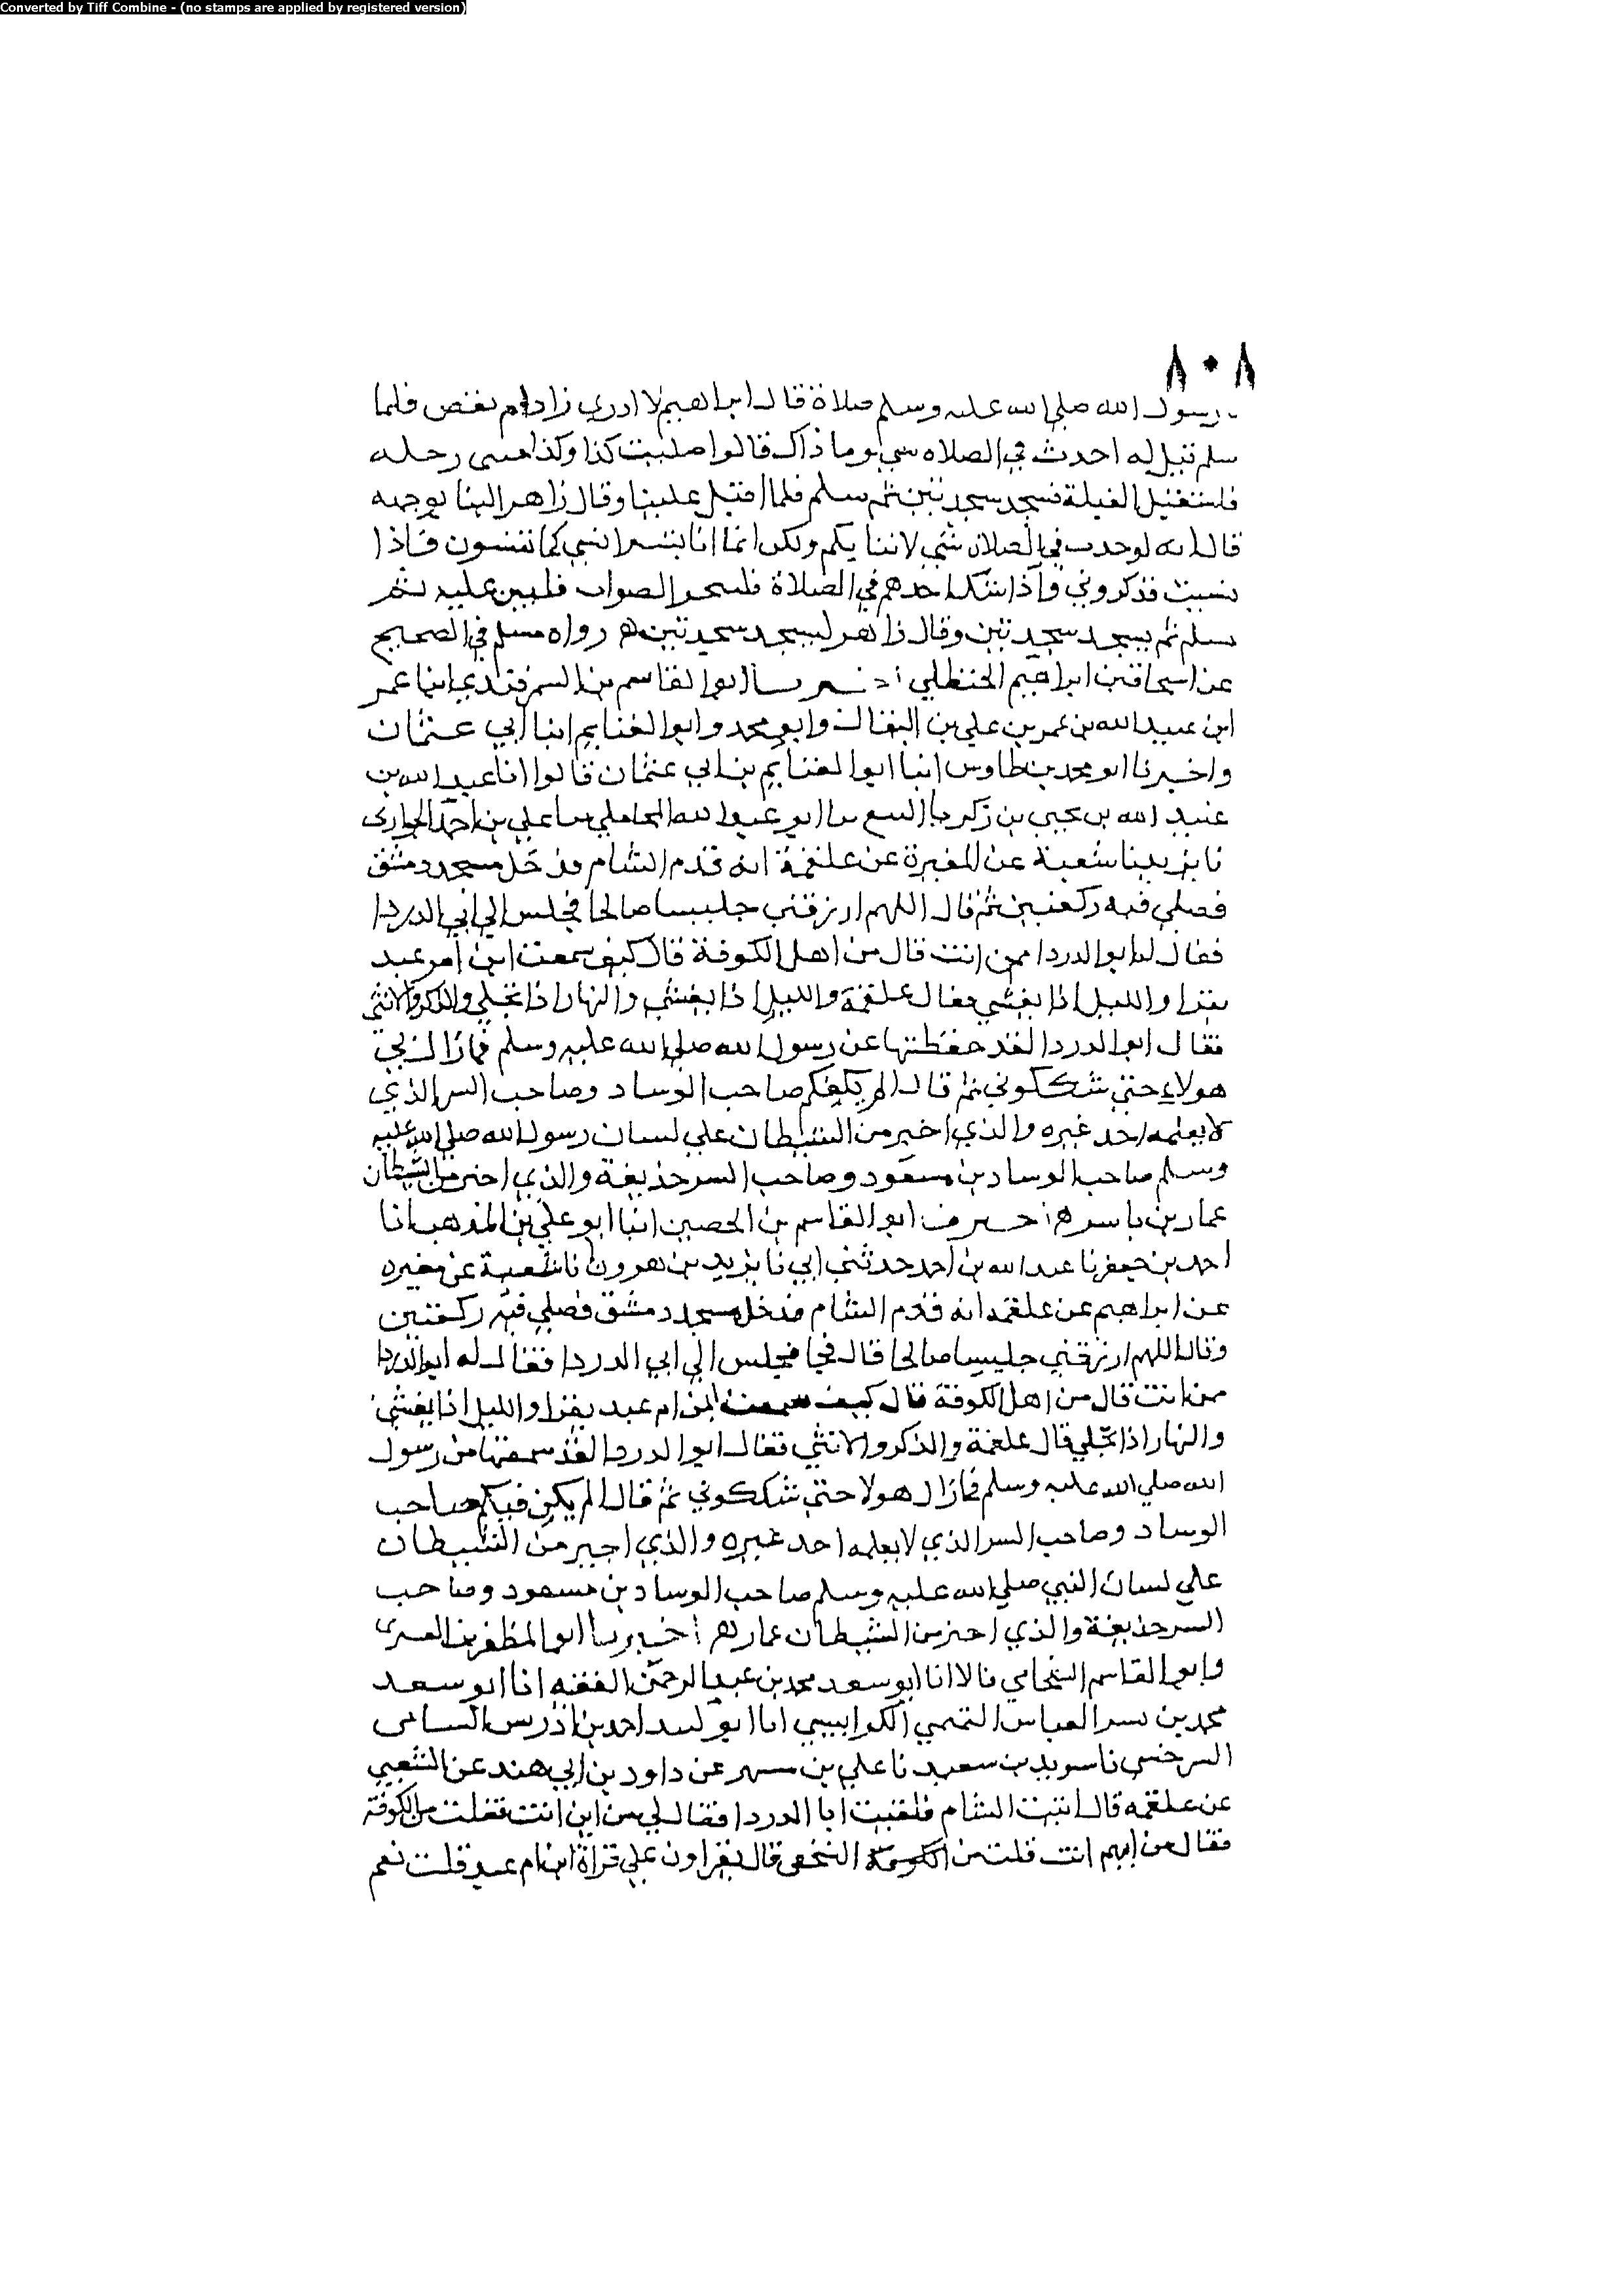 Converted by Tiff Combine - (no stamps are applied by registered version)
٨٠٨
رسول الله صلي الله عليه وسلم صلاة قال ابراهيم لا ادري زاد ام نقص فلما
سلم قيل له احدث في الصلاه شي وما ذاك قالوا صليت كذا وكذا فثني رجله
فاستقبل القبلة فسجد سجدتين ثم سلم فلما اقبل علينا وقال زاهر الينا بوجهه
قال انه لو حدث في الصلاة شي لانباتكم ولكن انما انا بشر انسي كما تنسون فاذا
نسيت فذكروني واذا شك احدهم في الصلاة فليتحر الصواب فليبن عليه ثم
يسلم ثم يسجد سجدتين وقال زاهر ليسجد سجدتين ه رواه مسلم في الصحيح
عن اسحاق بن ابراهيم الحنظلي اخبرنا ابوا القاسم بن السمرقندي انبا عمر
ابن عبيد الله بن عمر بن علي بن البقال وابو محمد وابوا الغنايم ابنا ابي عثمان
واخبرنا ابو محمد بن طاوس انبا ابوا الغنايم بن ابي عثمان قالوا انا عبد الله بن
عبيد الله بن يحيي بن زكريا البيع نا ابو عبد الله المحاملي نا علي بن احمد الجواربي
نا يزيد نا شعبة عن المغيرة عن علقمة انه قدم الشام فدخل مسجد دمشق
فصلي فيه ركعتين ثم قال اللهم ارزقني جليسا صالحا فجلس الي ابي الدردا
فقال له ابو الدردا ممن انت قال من اهل الكوفة قال كيف سمعت ابن ام عبد
يقرا والليل اذا يغشي فقال علقمة والليل اذا يغشي والنهار اذا تجلي والذكر والانثي
فقال ابوا الدردا لقد حفظتها عن رسول الله صلي الله عليه وسلم فما زال بي
هولاء حتي شككوني ثم قال الم يكن فيكم صاحب الوساد وصاحب السر الذي
لا يعلمه احد غيره والذي اجير من الشيطان علي لسان رسول الله صلي الله عليه
وسلم صاحب الوساد بن مسعود وصاحب السر حذيفة والذي اجير من الشيطان
عمار بن ياسر ه اخبرنا ابوا القاسم بن الحصين انبا ابو علي بن المذهب انا
احمد بن جعفر نا عبد الله بن احمد حدثني ابي نا يزيد بن هرون نا شعبة عن مغيره
عن ابراهيم عن علقمه انه قدم الشام فدخل مسجد دمشق فصلي فيه ركعتين
وقال اللهم ارزقني جليسا صالحا قال فجا فجلس الي ابي الدردا فقال له ابوا الدردا
ممن انت قال من اهل الكوفة قال كيف سمعت ابن ام عبد يقرا والليل اذا يغشي
والنهار اذا تجلي قال علقمة والذكر والانثي فقال ابوا الدردا لقد سمعتها من رسول
الله صلي الله عليه وسلم فما زال هولا حتي شككوني ثم قال الم يكن فيكم صاحب
الوساد وصاحب السر الذي لا يعلمه احد غيره والذي اجير من الشيطان
علي لسان النبي صلي الله عليه وسلم صاحب الوساد بن مسعود وصاحب
السر حذيفة والذي اجير من الشيطان عمار ه اخبرنا ابوا المظفر بن القشيري
وابوا القاسم الشحامي قالا انا ابو سعد محمد بن عبد الرحمن الفقيه انا ابو سعد
محمد بن بشر العباس التميمي الكرابيسي انا ابو لبيد احمد بن ادريس السامي
السرخسي نا سويد بن سعيد نا علي بن مسهر عن داود بن ابي هند عن الشعبي
عن علقمه قال اتيت الشام فلقيت ابا الدردا فقال لي من اين انت فقلت من الكوفة
فقال من ايهم انت قلت من النخعي قال يقراون علي قراة ابن ام عبد قلت نعم